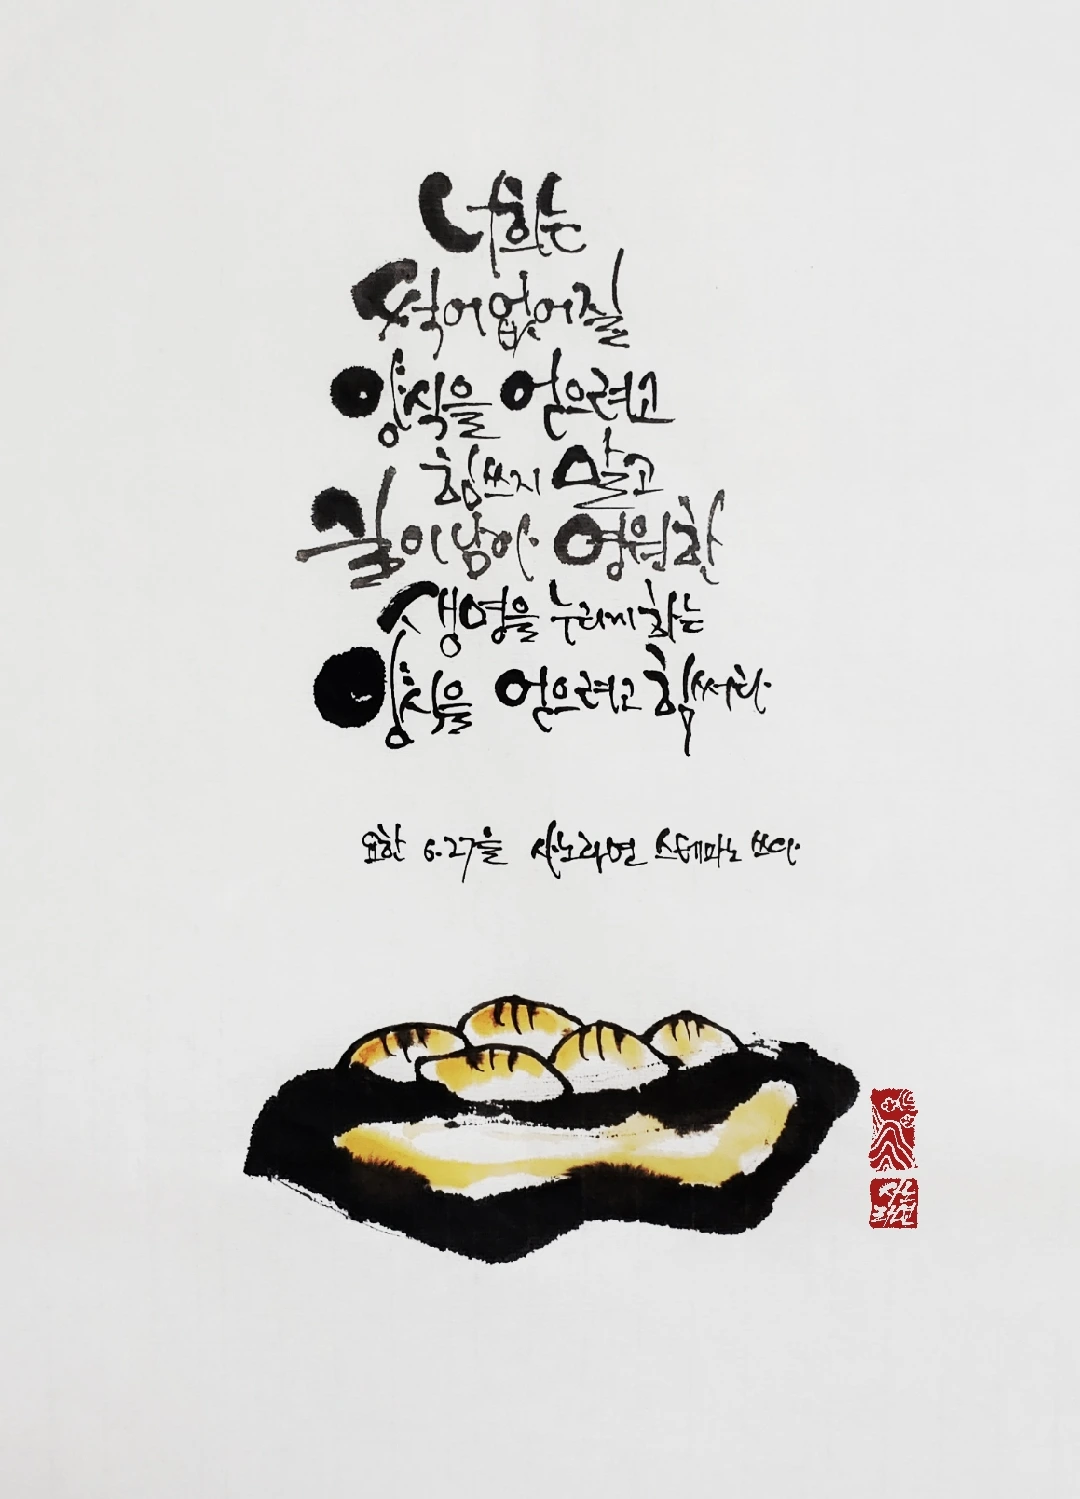 너희는
썩어 없어질
양식을 얻으려고
힘쓰지 말고
길이 남아 영원한
생명을 누리게 하는
양식을 얻으려고 힘써라
요한 6.27을 사노라면 스테파노 쓰다